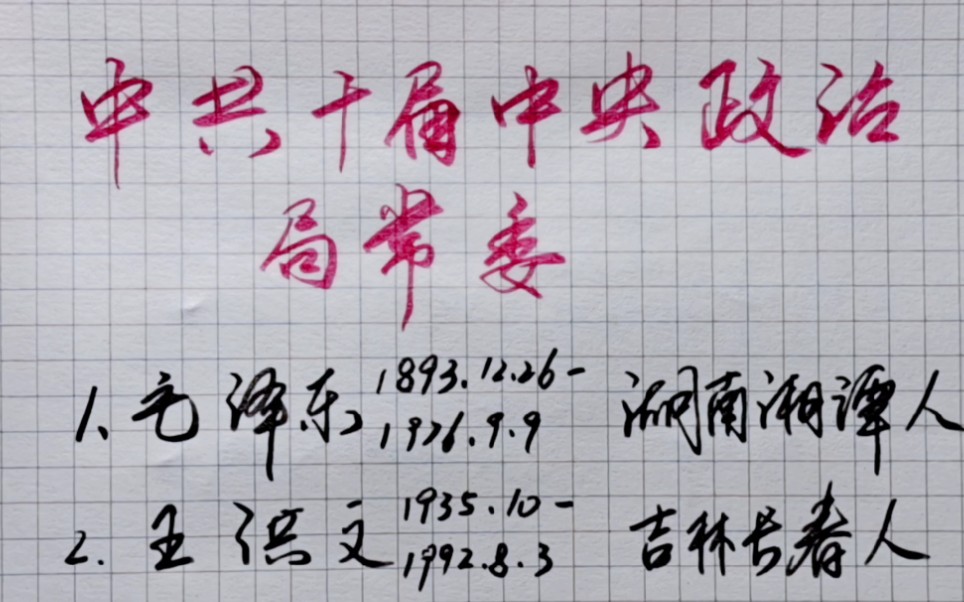 中共十届中央政治
局常委
1、毛泽东 1893.12.26-1976.9.9 湖南湘潭人
2. 王洪文 1935.10-1992.8.3 吉林长春人